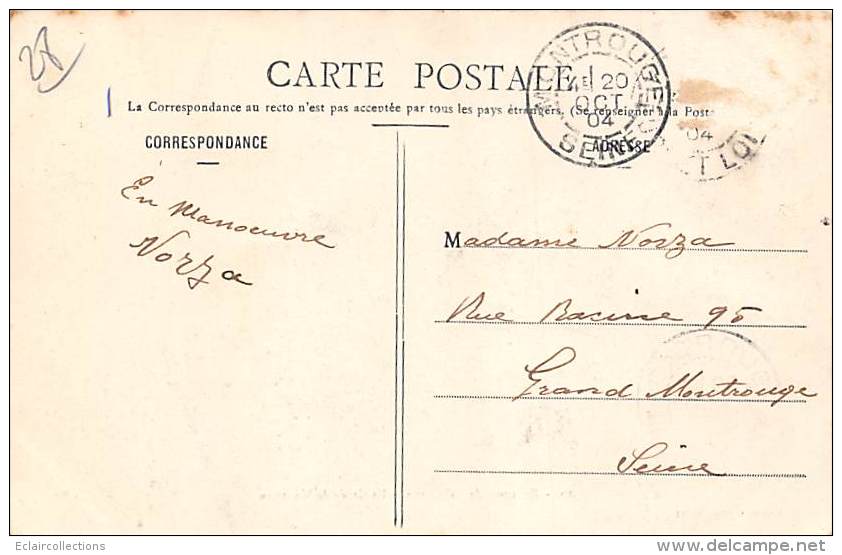 28
CARTE POSTALE
La Correspondance au recto n'est pas acceptée par tous les pays étrangers. (Se renseigner à la Poste
CORRESPONDANCE
ADRESSE
MONTROUGE
4E 20
OCT
04
SEINE
04
ET LOI
En Manoeuvre
Norza
Madame Norza
Rue Racine 95
Grand Montrouge
Seine
Eclaircollections
www.delcampe.net